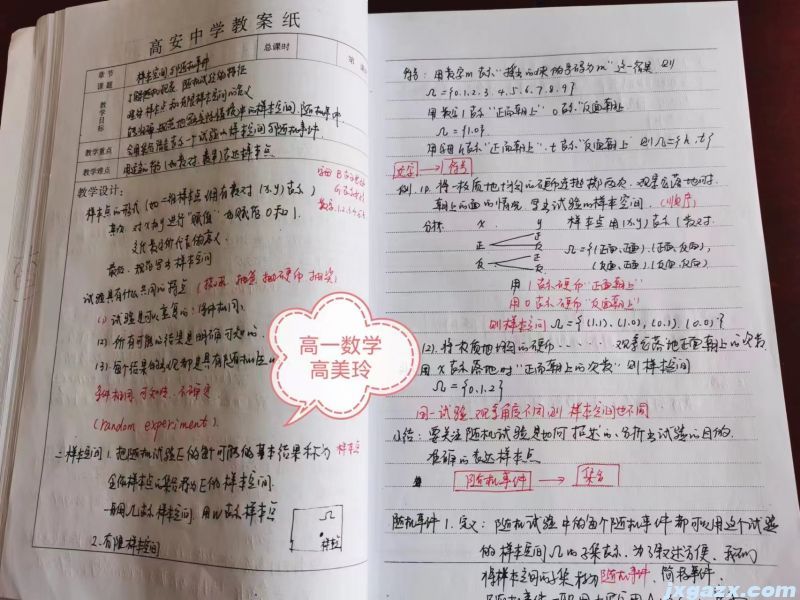 高安中学教案纸
章节
课题
样本空间与随机事件
总课时
教学目标
理解随机现象、随机试验的特征
教学重点
会用集合语言表示一个试验的样本空间与随机事件
教学难点
用适当的符号(如数对、数集)表达样本点
教学设计:
样本点的形式(如二维样本点,用有序数对(x,y)表示)
其次:对x和y进行"赋值",也赋范0和1.
最后:规范写出样本空间
试验具有什么共同的特点
(1) 试验是可以重复的:条件相同.
(2) 所有可能的结果是明确可知的.
(3) 每个结果的出现都是具有随机性的
条件相同,可知性,不确定
(random experiment).
二.样本空间 1.把随机试验E的每个可能的基本结果称为 样本点
全体样本点的集合称为E的样本空间.
一般用Ω表示样本空间.用ω表示样本点
Ω
样本点
2.有限样本空间
高一数学
高美玲
符号:用数字m表示"摇出的球的号码为m"这一结果,则
Ω={0.1.2.3.4.5.6.7.8.9}
用数字1表示"正面朝上" 0表示"反面朝上"
Ω={1.0}
用字母h表示"正面朝上".t表示"反面朝上" 则Ω={h.t}
文字 → 符号
例. (1).将一枚质地均匀的硬币连抛掷两次,观察它落地时
朝上的面的情况,写出试验的样本空间.(顺序)
分析: x y 样本点用(x,y)表示(数对.
正 正 反
反 正 反
Ω={(正面、正面).(正面、反面),
(反面、正面).(反面、反面)}
用1表示硬币"正面朝上"
用0表示硬币"反面朝上"
则样本空间Ω={(1.1).(1.0),(0.1).(0.0)}
(2).将一枚质地均匀的硬币······观察它落地正面朝上的次数
用x表示落地时"正面朝上的次数" 则样本空间
Ω={0.1.2}
同一试验,观察角度不同,则样本空间也不同
小结:要关注随机试验是如何描述的、分析出试验的目的.
准确的表达样本点
随机事件 → 集合
随机事件 1.定义:随机试验中的每个随机事件都可以用这个试验
的样本空间Ω的子集表示,为了叙述方便,我们
将样本空间的子集称为随机事件,简称事件.
jxgazx.com